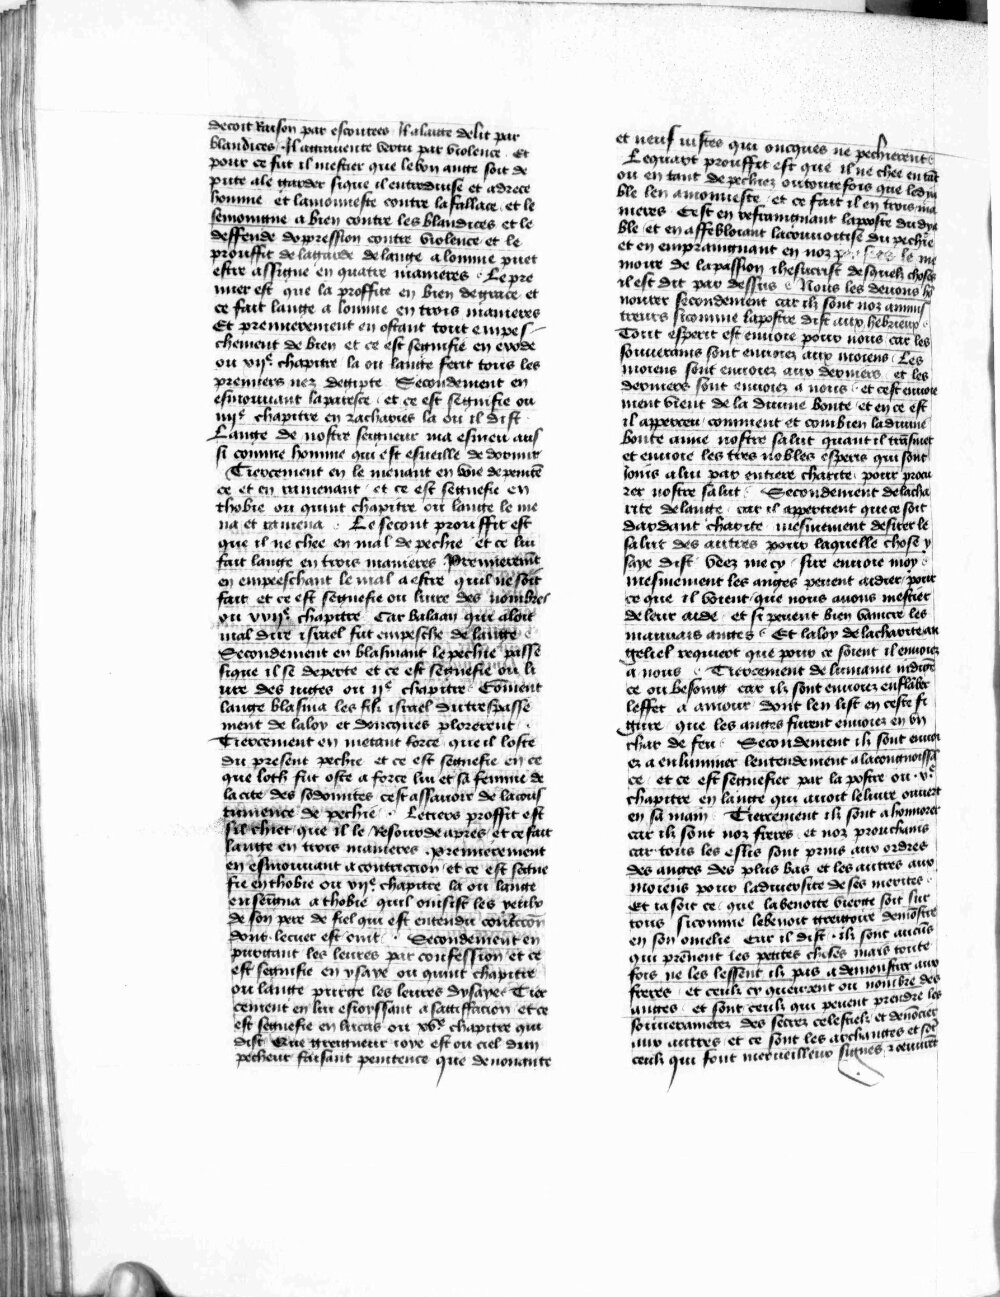 decoit Raison par escoutees Il alaitte delit par
blandices. Il agravente vertu par violence. Et
pour ce fut il mestier que le bon ange soit de
pute ale garder si que il entroduise et adrece
homme et lamonneste contre la fallace. et le
semoingne a bien contre les blandices et le
deffende doppression contre violence et le
prouffit de la garde de lange a lomme puet
estre assigne en quatre manieres. Le pre
mier est que la proffite en bien de grace. et
ce fait lange a lomme en trois manieres
Et premierement en ostant tout empes
chement de bien et ce est segnifie en exode
ou viie chapitre la ou lange ferit tous les
premiers nez degipte Secondement en
esmouvant la paresce. et ce est segnifie ou
iiije chapitre en zacharies la ou il dist
Lange de nostre seigneur ma esmeu aus
si comme homme qui est esueille de dormir
Tiercement en le menant en voie de peniten
ce et en ramenant. et ce est segnefie en
thobie ou quint chapitre ou lange le me
na et ramena. Le second prouffit est
que il ne chee en mal de pechie. et ce lui
fait lange en trois manieres. Premierement
en empeschant le mal a estre quil ne soit
fait et ce est segnefie ou livre des nombres
ou xxije chapitre. Car balaan qui aloit
mal dire israel fut empesche de lange.
Secondement en blasmant le pechie passe
si que il se departe et ce est segnefie ou li
vre des iuges ou ije chapitre. Coment
lange blasma les filz israel du trespasse
ment de la loy et doncques plorerent.
Tiercement en metant force que il loste
du present pechie et ce est segnefie en ce
que loth fut oste a force lui et sa femme de
la cite des sodomites cest assavoir de la cous
tumence de pechie. Le tiers proffit est
sil chiet que il le Resourde apres. et ce fait
lange en trois manieres. premierement
en esmouvant a contriccion. et ce est segne
fie en thobie ou vije chapitre la ou lange
enseigna a thobie quil onisist les yeulx
de son pere de fiel qui est entendu contricion
dont le cuer est oint. Secondement en
purgant les levres par confession. et ce
est segnifie en ysaye ou quint chapitre
ou lange purge les levres dysaye. Tier
cement en lui esioyssant a satiffacion. et ce
est segnefie en lucas ou xve chapitre qui
dist Que greigneur ioye est ou ciel dun
pecheur faisant penitence que de nonante
et neuf iustes qui oncques ne pecherent.
Le quart prouffit est que il ne chee en tant
ou en tant de pechiez ou toutefois que le dya
ble len amonneste. et ce fait il en trois ma
nieres Cest en reframgnant la poste du dya
ble et en affebloiant la couvoitise du pechie
et en empraingnant en noz le me
moire de la passion ihesucrist desquelx choses
il est dit par dessus. Nous les devons ho
nourer secondement car ilz sont noz aminis
treurs si comme lapostre dist aux hebrieux.
Tout esperit est envoie pour nous car les
souverains sont envoiez aux moiens. Les
moiens sont envoiez aux derniers. et les
derniers sont envoiez a nous. et cest envoie
ment vient de la divine bonte. et en ce est
il apperceu comment et combien la divine
bonte aime nostre salut quant il transmet
et envoie les tres nobles esperis qui sont
ioins a lui par entiere charite pour procu
rer nostre salut. Secondement de la cha
rite de lange. car il appertient que ce soit
dardant charite mesmement desirer le
salut des autres pour laquelle chose y
saye dist. Veez me cy sire envoie moy.
mesmement les anges pevent aidier. pour
ce que il voient que nous avons mestier
de leur aide. et si pevent bien vaincre les
mauvais anges. Et la loy de la charite an
geliel requiert que pour ce soient il envoiez
a nous. Tiercement de lumaine indigen
ce ou besoing car ilz sont envoiez enflaber
leffet a amour dont len list en ceste fi
gure que les anges furent envoiez en un
char de feu. Secondement ilz sont envoi
ez a enluminer lentendement a la congnoissan
ce. et ce est segnefier par la postre ou xe
chapitre en lange qui avoit le livre ouvert
en sa main. Tiercement ilz sont a honnorer
car ilz sont noz freres. et noz prouchains
car tous les esliz sont prins aux ordres
des anges des plus bas et les autres aux
moiens pour la diversite de ses merites.
Et ia soit ce que la benoite vierge soit sur
tous si comme le benoit gregoire demostre
en son omelie Car il dist. ilz sont aucuns
qui prennent les petites choses mais toute
fois ne les lessent ilz pas a demonstrer aux
freres. et ceulx cy queurent ou nombre des
anges. et sont ceulx qui pevent prendre les
souverainetez des secrez celestielz. et denoncier
aux autres et ce sont les archanges et sont
ceulx qui font merveilleux signes. et oeuvrent